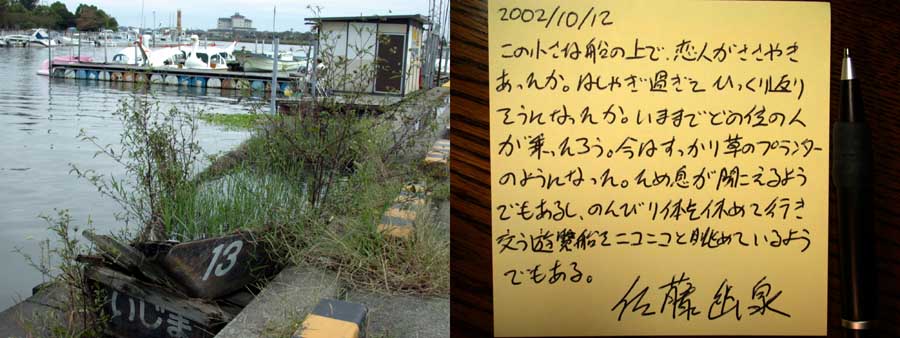 13
いじま
2002/10/12
この小さな船の上で、恋人がささやき
あったか。はしゃぎ過ぎて ひっくり返り
そうになったか。いままでどの位の人
が乗ったろう。今はすっかり草のプランター
のようになった。ため息が聞こえるよう
でもあるし、のんびり体を休めて行き
交う遊覧船をニコニコと眺めているよう
でもある。
佐藤幽泉